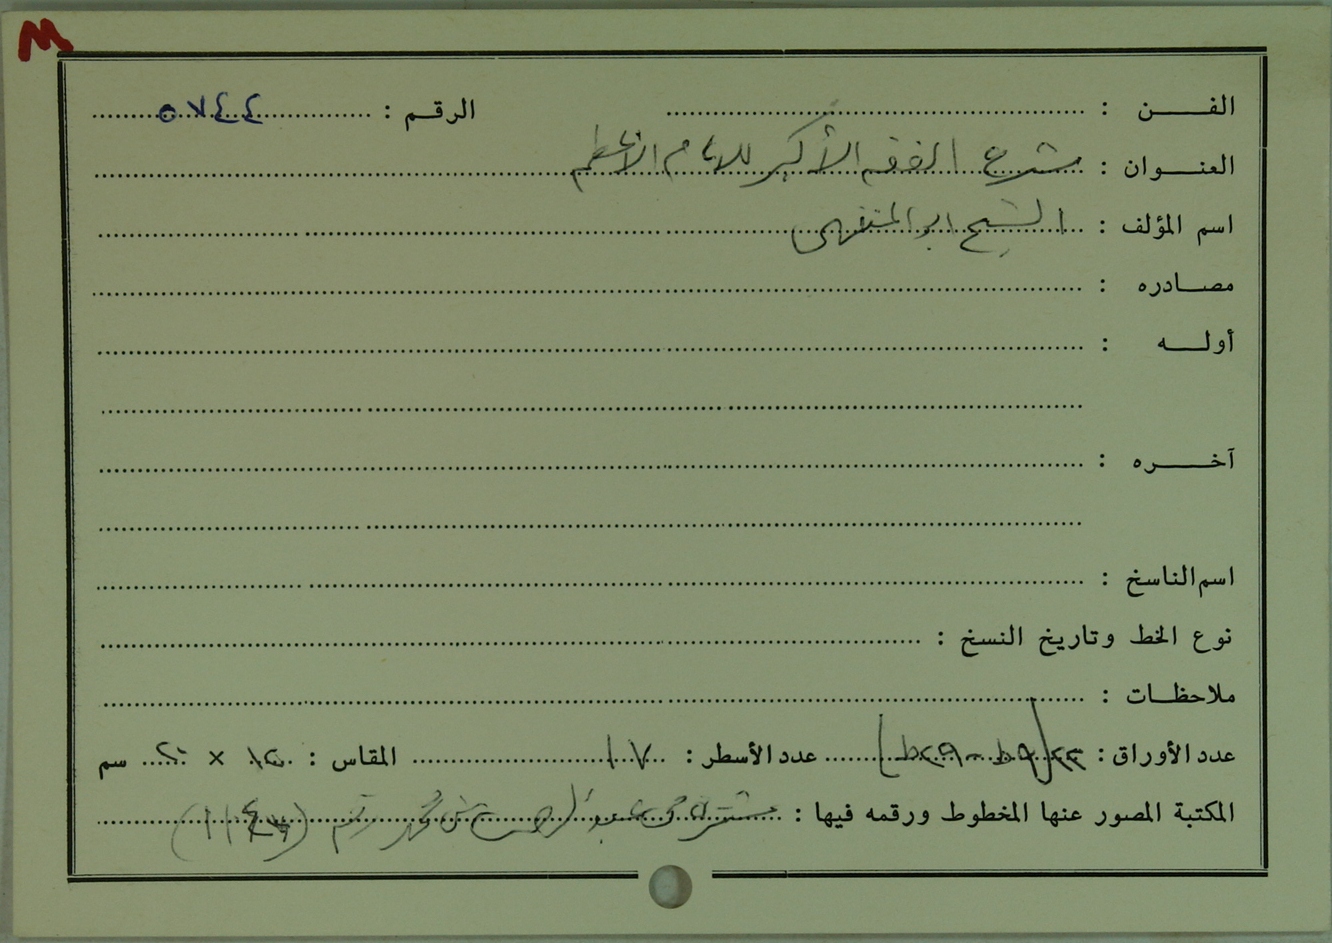 الفن : الرقم : ٥٧٤٤
العنوان : شرح الفقه الأكبر للامام الاعظم
اسم المؤلف : الشيخ ابو المنتهى
مصادره :
أوله :
آخره :
اسم الناسخ :
نوع الخط وتاريخ النسخ :
ملاحظات :
عدد الأوراق : ٢٣ عدد الأسطر : ١٧ المقاس : × ٢٠ سم
المكتبة المصور عنها المخطوط ورقمه فيها : محمد رقم